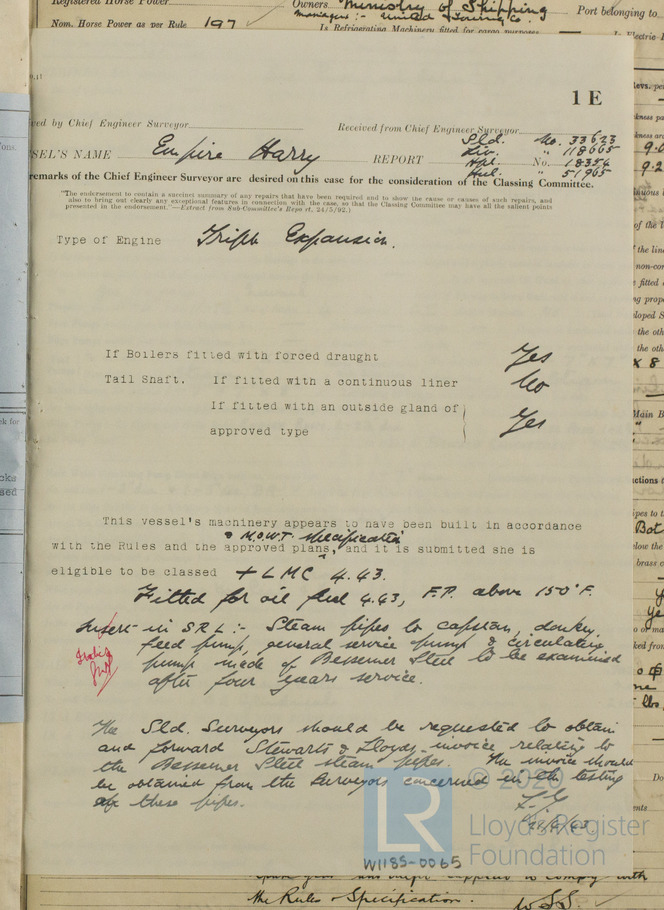 Registered Horse Power
Owners Ministry of Shipping
Managers:- United Towing Co.
Port belonging to
Nom. Horse Power as per Rule 197
Is Refrigerating Machinery fitted for cargo purposes
Is Electric
1 E
ved by Chief Engineer Surveyor
Received from Chief Engineer Surveyor
Sld. No. 33623
SEL'S NAME Empire Harry REPORT Liv. " 118665
Hpl. No. 18354
Hul. " 51965
remarks of the Chief Engineer Surveyor are desired on this case for the consideration of the Classing Committee.
"The endorsement to contain a succinct summary of any repairs that have been required and to show the cause or causes of such repairs, and
also to bring out clearly any exceptional features in connection with the case, so that the Classing Committee may have all the salient points
presented in the endorsement."—Extract from Sub-Committee's Report, 24/5/92.)
Type of Engine Triple Expansion.
If Boilers fitted with forced draught Yes
Tail Shaft. If fitted with a continuous liner No
If fitted with an outside gland of
approved type Yes
This vessel's machinery appears to have been built in accordance
& M.O.W.T. Specification
with the Rules and the approved plans, and it is submitted she is
eligible to be classed + LMC 4.43.
Fitted for oil fuel 4.43, F.P. above 150°F.
Insert in S R L :- Steam pipes to capstan, donkey
feed pump, general service pump & circulating
pump made of Bessemer Steel to be examined
after four years service.
The Sld. Surveyors should be requested to obtain
and forward Stewarts & Lloyds invoice relating to
the Bessemer Steel steam pipes. The invoice should
be obtained from the Surveyors concerned in the testing
of these pipes.
© 2020
LR
Lloyd's Register
Foundation
W1185-0065
the Rules & Specification. W.S.S.